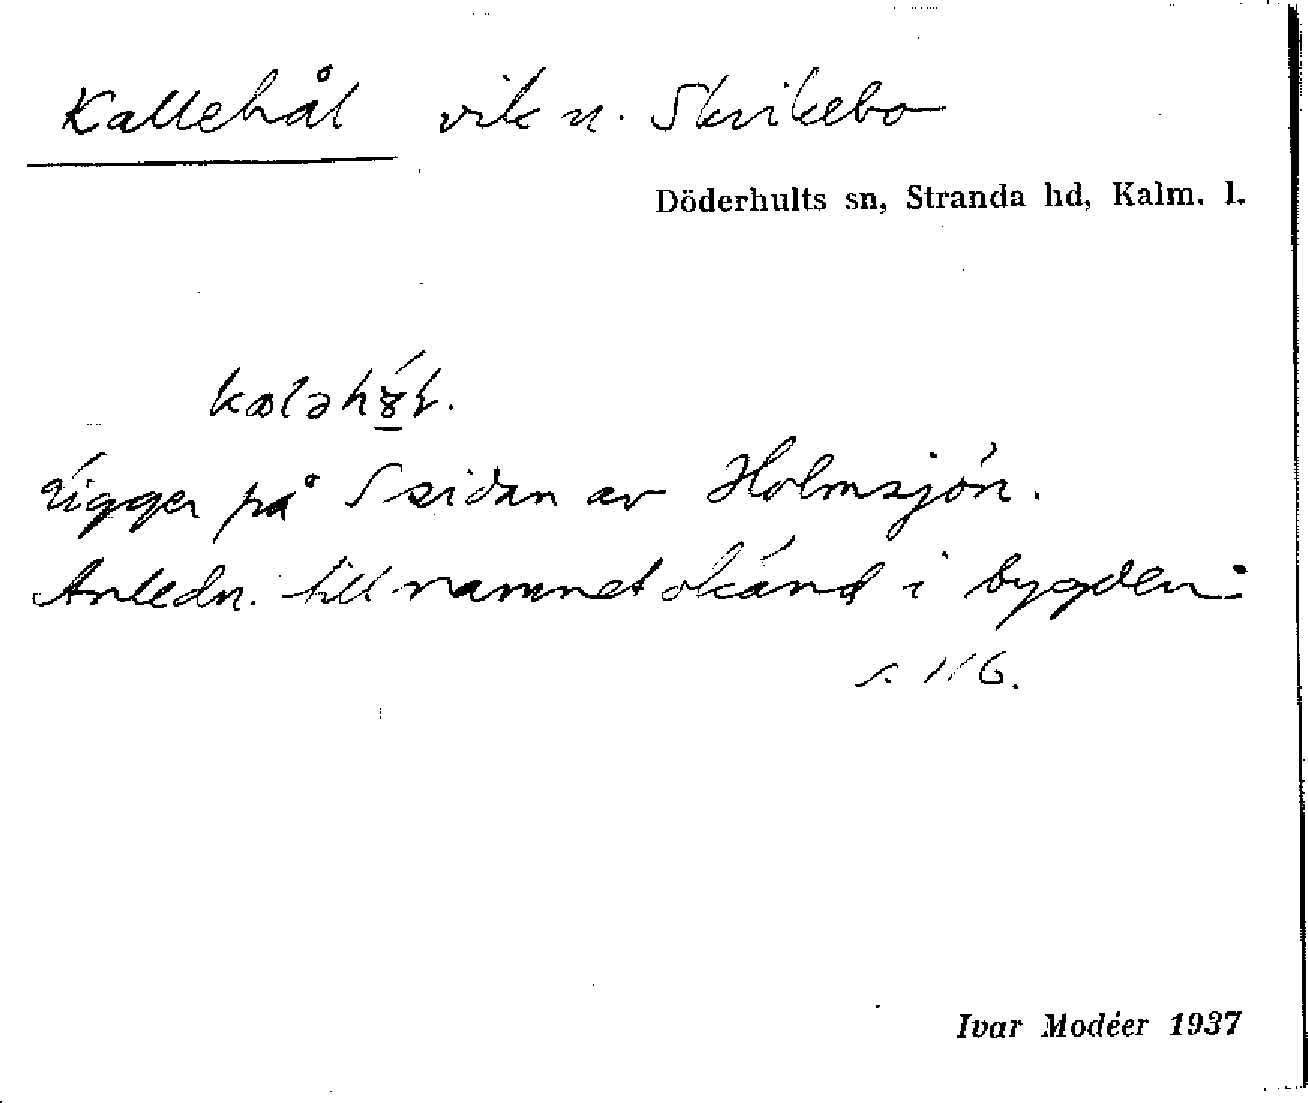 Kallehål vik n. Skrikebo
Döderhults sn, Stranda hd, Kalm. l.
Ligger på S sidan av Holmsjön.
Anledn. till namnet okänd i bygden.
s. 116.
Ivar Modéer 1937